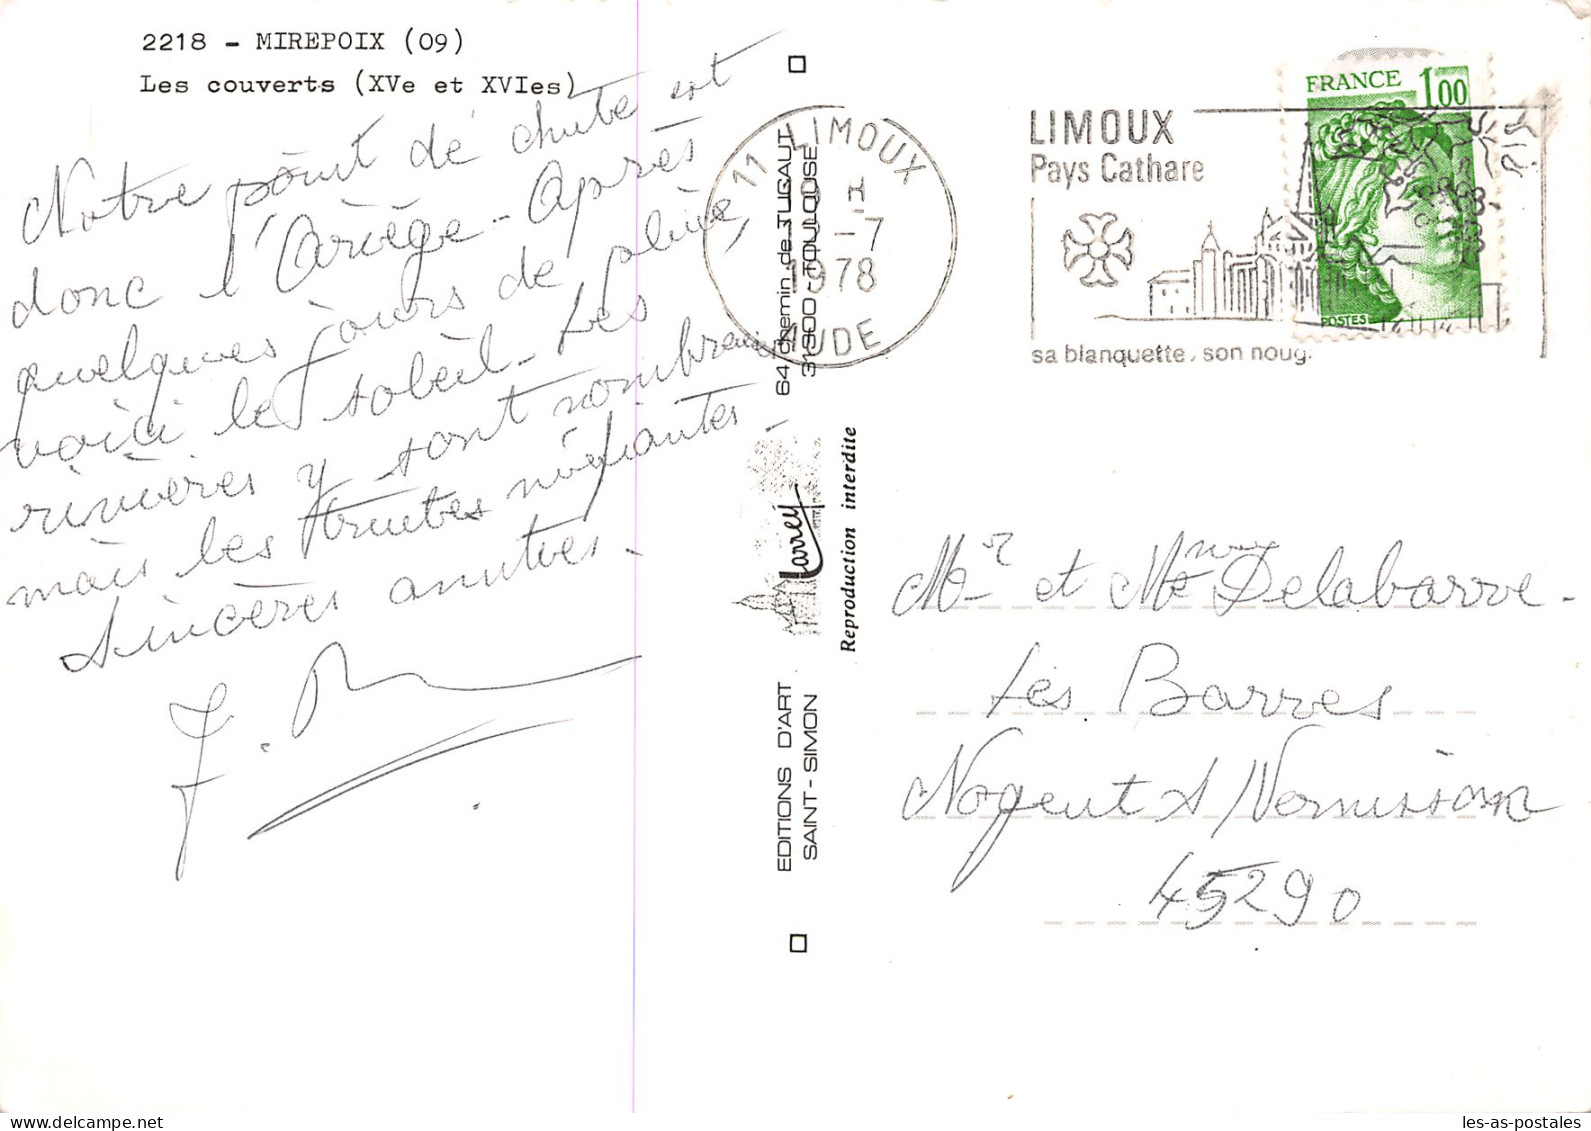 2218 - MIREPOIX (09)
Les couverts (XVe et XVIes)
Notre point de chute est
donc l'Ariège - Après
quelques jours de pluie,
voici le soleil - Les
rivières y sont nombreuses
mais les truites méfiantes -
Sincères amitiés -
11 LIMOUX
H
-7
1978
AUDE
LIMOUX
Pays Cathare
sa blanquette, son noug.
FRANCE 1,00
POSTES
64, chemin de TUCAUT
31300 - TOULOUSE
Larrey
Reproduction interdite
EDITIONS D'ART
SAINT-SIMON
Mr et Mme Delabarre -
Les Barres
Nogent s/Vernisson
45290
les-as-postales